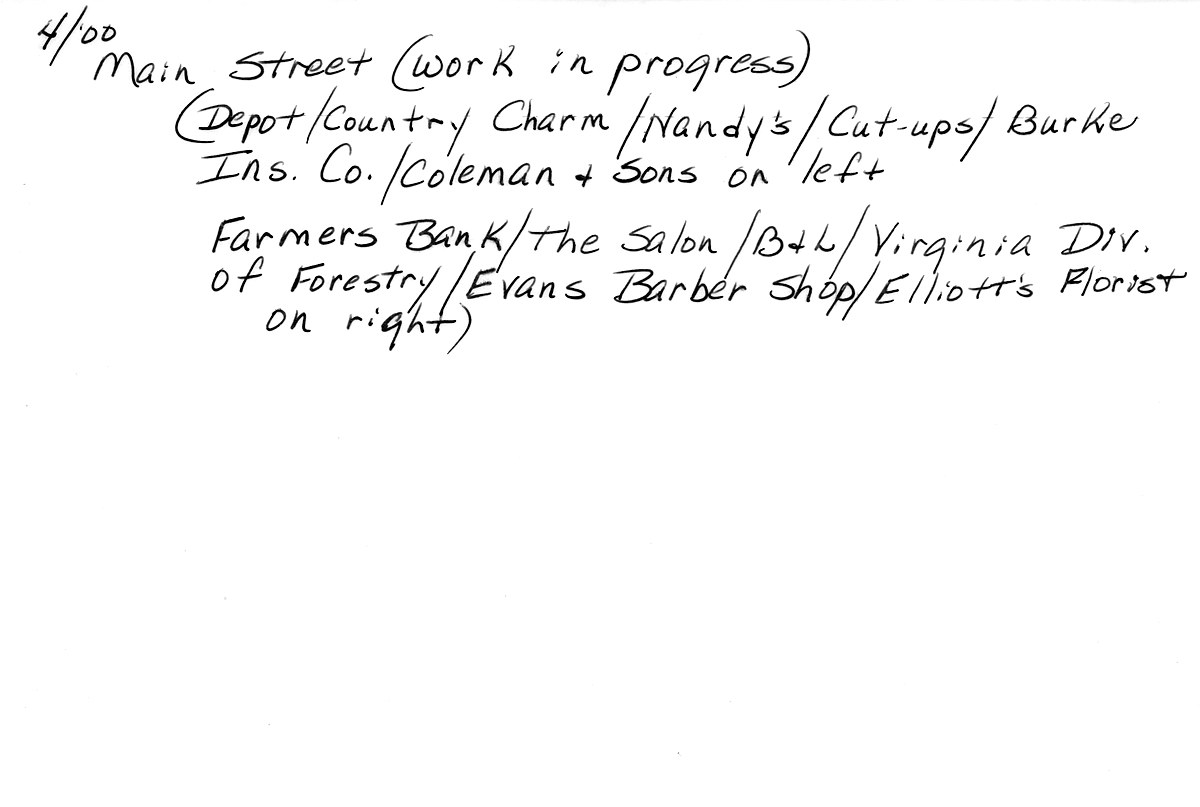 4/00
Main Street (work in progress)
(Depot/Country Charm/Nandy's/Cut-ups/Burke
Ins. Co./Coleman + Sons on left
Farmers Bank/the Salon/B+L/Virginia Div.
of Forestry/Evans Barber Shop/Elliott's Florist
on right)